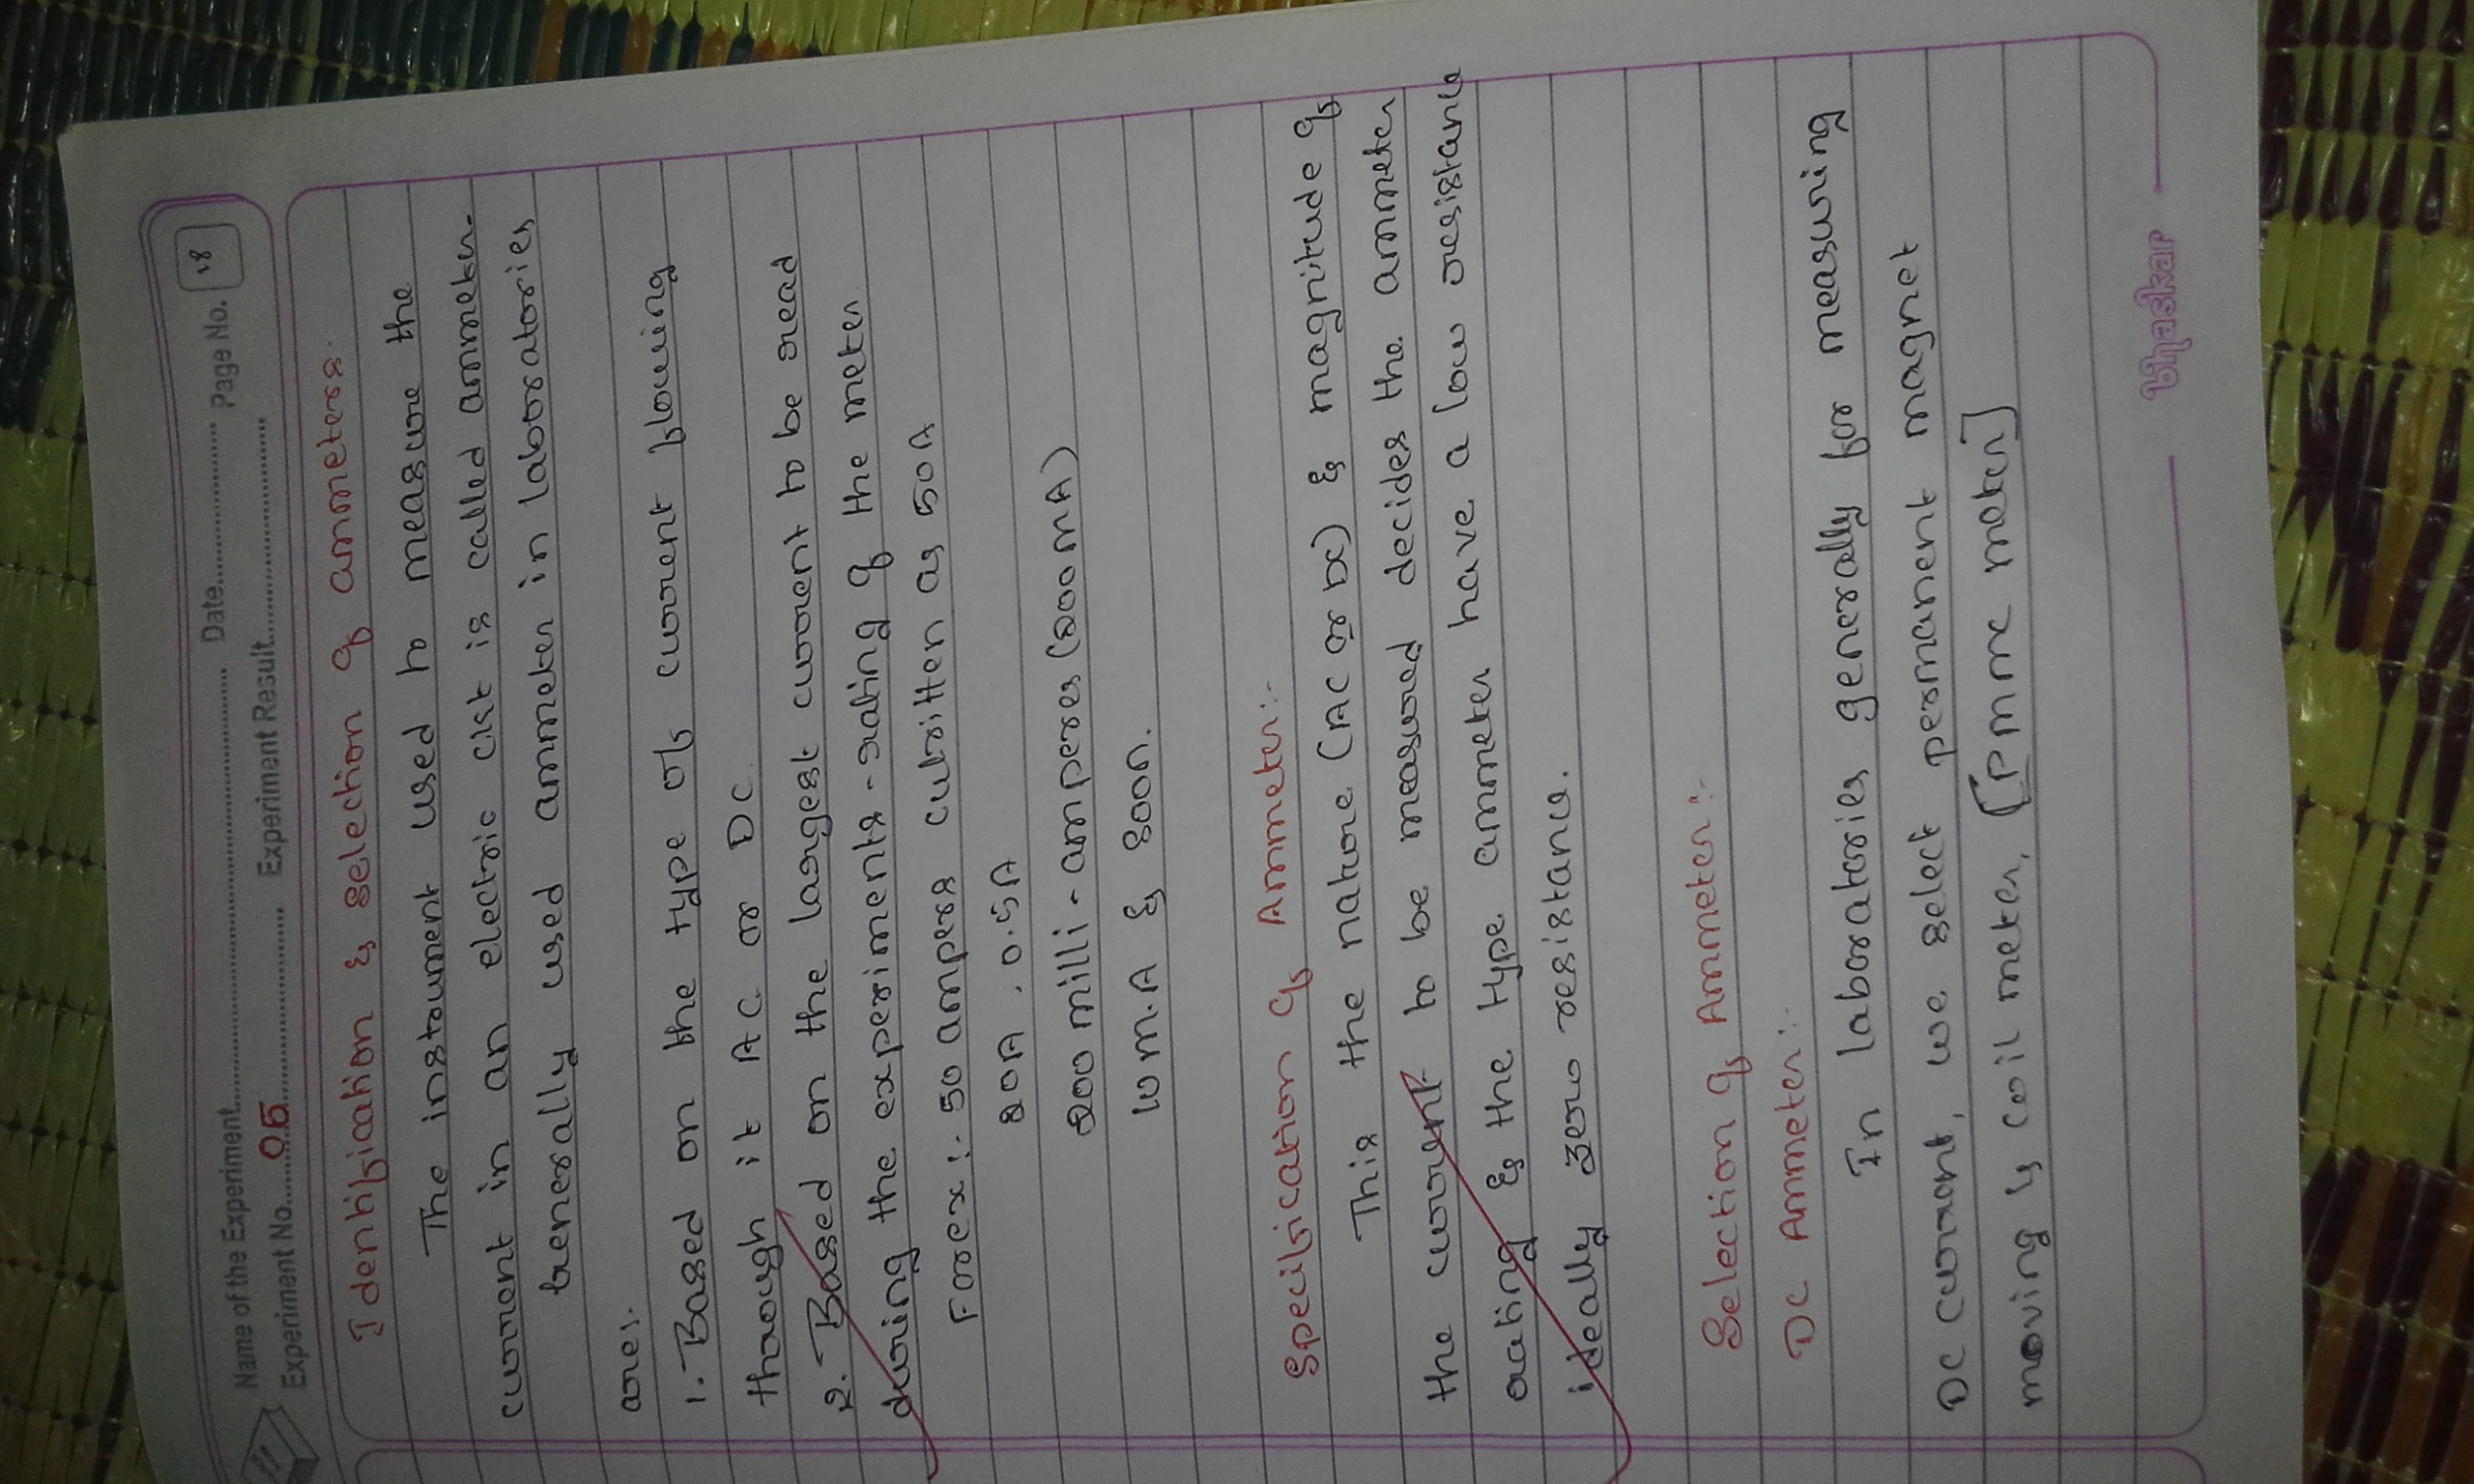 Name of the Experiment........ Date........ Page No. 18
Experiment No. 05 Experiment Result........
Identification & selection of ammeters.
The instrument used to measure the
current in an electric ckt is called ammeter.
Generally used ammeter in laboratories
are:
1. Based on the type of current flowing
through it AC or DC
2. Based on the largest current to be read
during the experiments - rating of the meter
For ex: 50 ampers curitten as 50A
20A, 0.5A
200 milli-amperes (200mA)
10 m.A &
Specification of Ammeter:-
This the nature (AC or DC) & magnitude of
the current to be measured decides the ammeter
rating & the type ammeter have a low resistance
ideally zero resistance.
Selection of Ammeter:-
DC Ammeter:-
In laboratories generally for measuring
DC current, we select permanent magnet
moving coil meter, [PMMC meter]
bhaskar